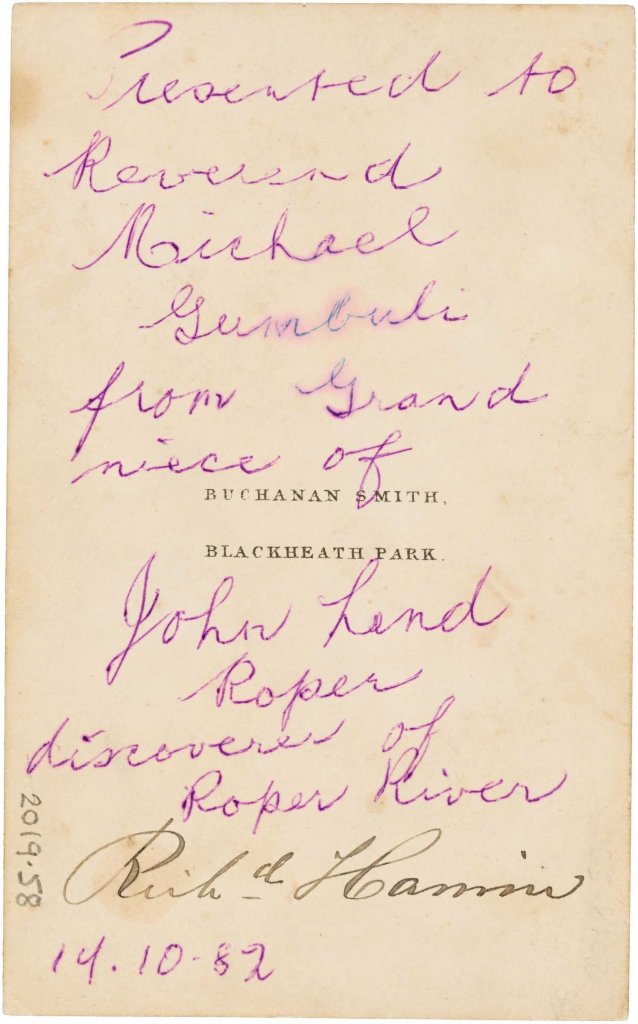 Presented to
Reverend
Michael
Gumbuli
from Grand
niece of
BUCHANAN SMITH,
BLACKHEATH PARK.
John Lend
Roper
discoverer of
Roper River
Richd
14.10.82
2019.58